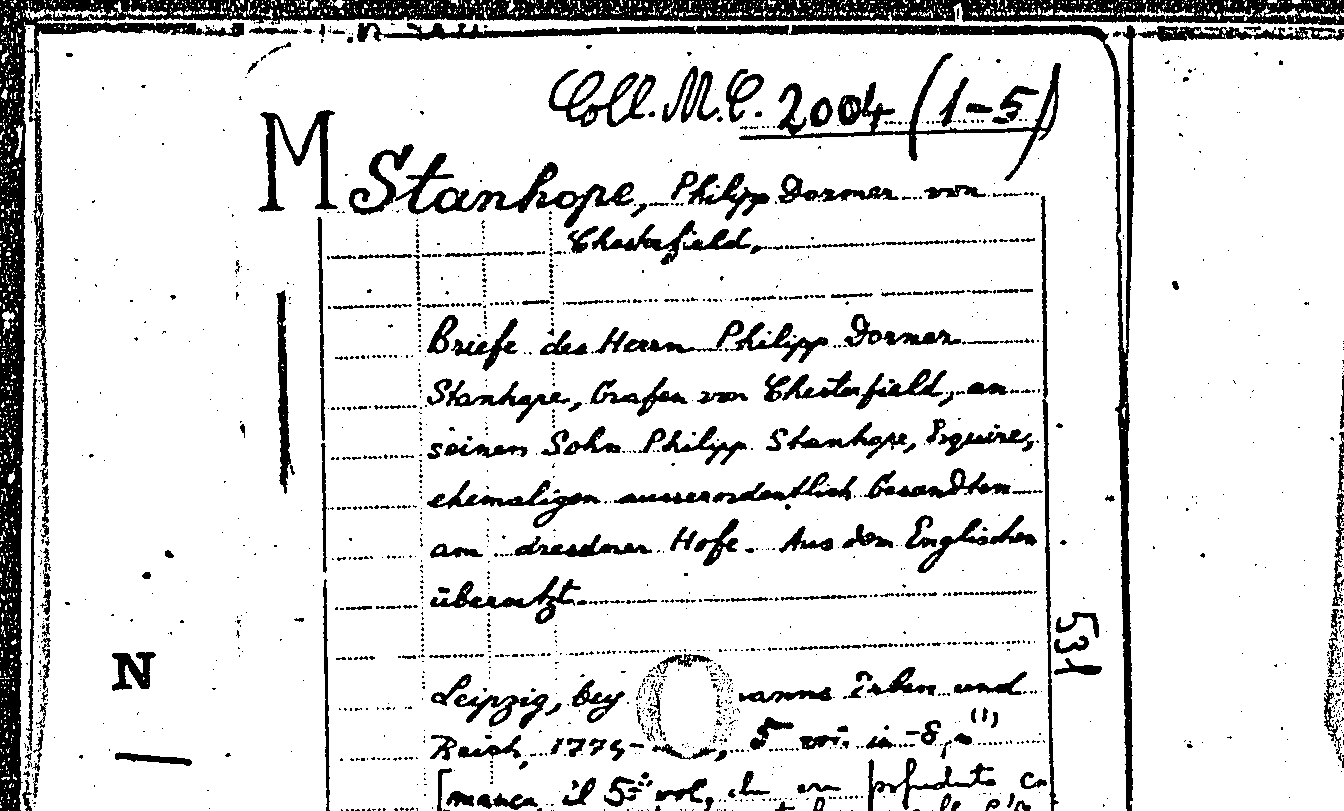 Coll. M. C. 2004 (1-5)
M Stanhope, Philipp Dormer von
Chesterfield.
Briefe des Herrn Philipp Dormer
Stanhope, Grafen von Chesterfield, an
seinen Sohn Philipp Stanhope, Esquire,
ehemaligen ausserordentlich Gesandten
am dresdner Hofe. Aus dem Englischen
übersetzt.
531
N
Leipzig, bey Erben und
Reich, 5 vol. in -8,° (1)
[manca il 5° vol,